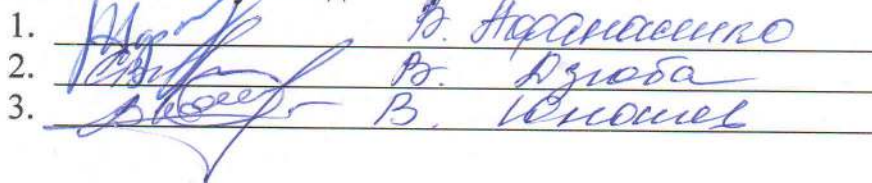 1. В. Афанасенко
2. В. Дзюба
3. В. Юношев